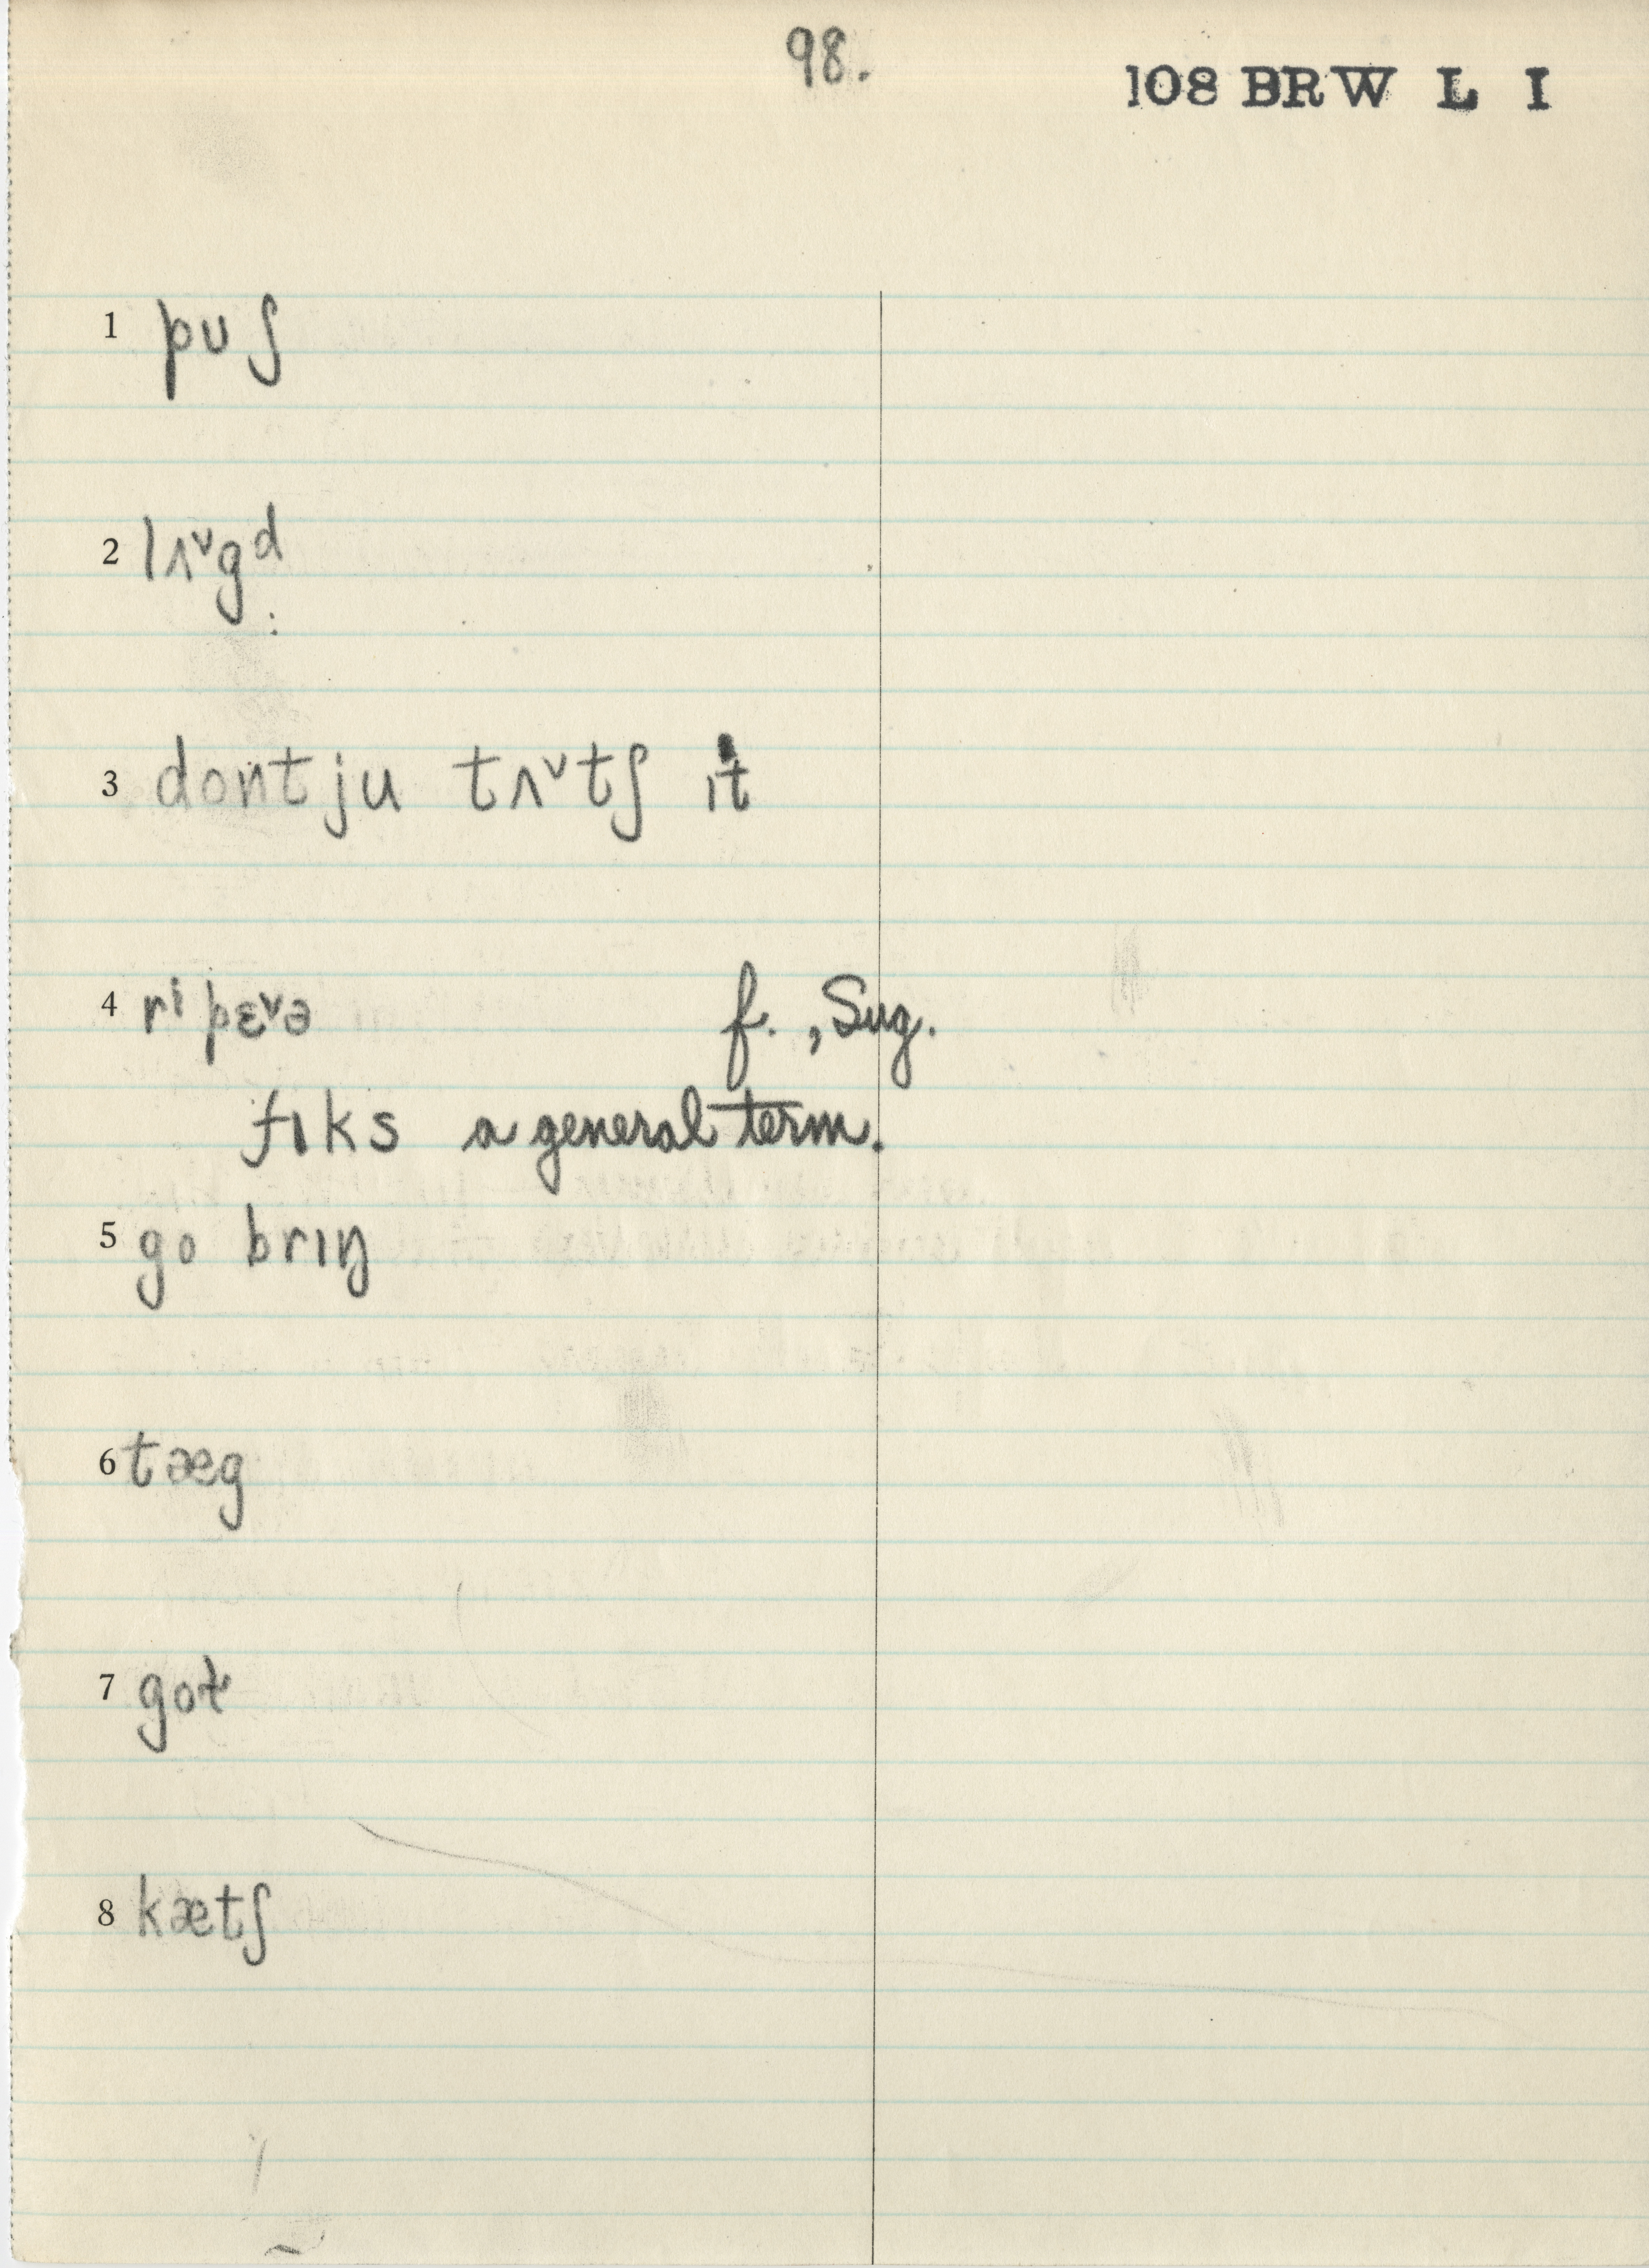 98.
108 BRW L I
1 pʊʃ
2 lʌ˅gᵈ
3 dont ju tʌ˅tʃ ɪt
4 rⁱpɛ˅ə f., Sug.
fɪks a general term.
5 go brɪŋ
6 tæg
7 got
8 kætʃ